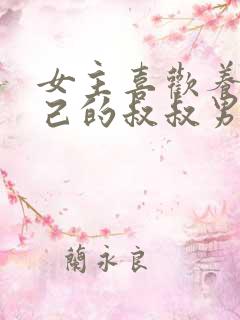 女主喜歡養
己的叔叔男
蘭永良